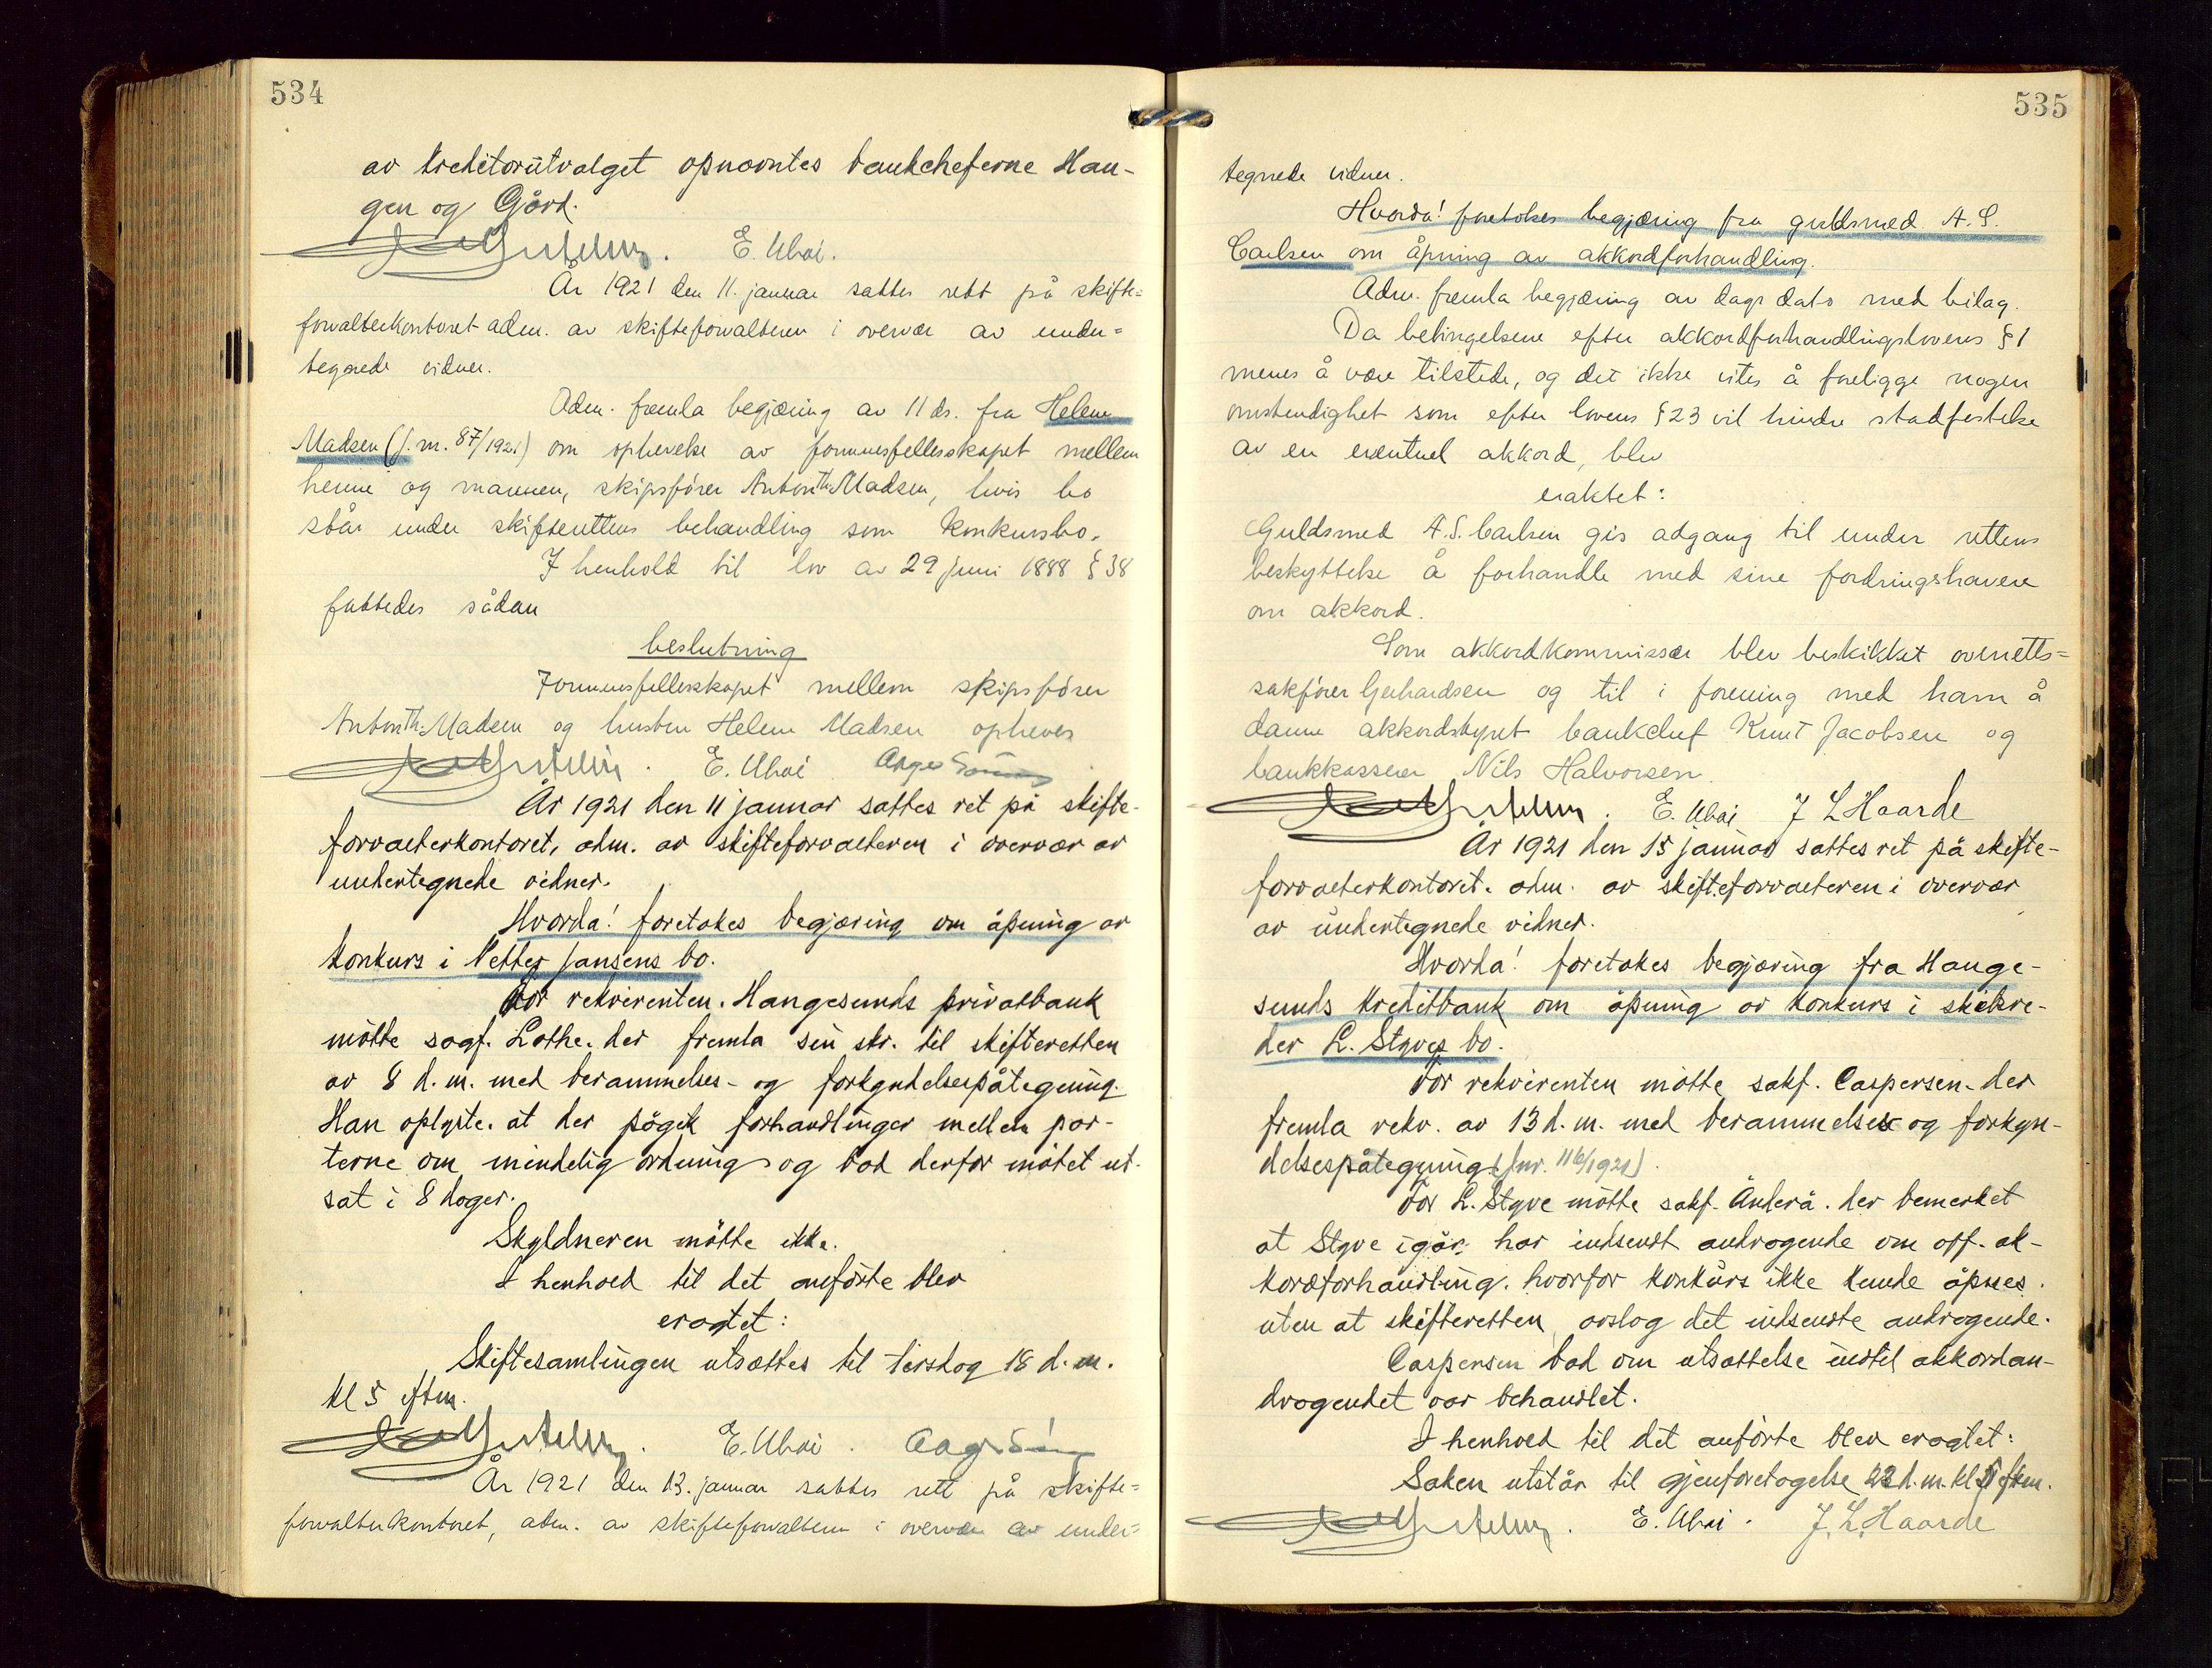 534
av kreditorutvalget opnævntes bankcheferne Hau-
gen og Gård.
E. Ubøi.
År 1921 den 11. januar sattes rett på skifte=
forvalterkontoret adm. av skifteforvalteren i overvær av under=
tegnede vidner.
Adm. fremla begjæring av 11 ds. fra Helene
Madsen (J. nr. 87/1921) om ophevelse av formuesfellesskapet mellem
henne og mannen, skipsfører Anton Th. Madsen, hvis bo
står under skifterettens behandling som konkursbo.
I henhold til lov av 29 juni 1888 § 38
fattedes sådan
beslutning
Formuesfellesskapet mellem skipsfører
Anton Th. Madsen og hustru Helene Madsen opheves
E. Ubøi
År 1921 den 11 januar sattes ret på skifte-
forvalterkontoret, adm. av skifteforvalteren i overvær av
undertegnede vidner.
Hvorda! foretokes begjæring om åpning av
konkurs i Petter Jansens bo.
For rekvirenten. Haugesunds privatbank
møtte sagf. Lothe. der fremla sin skr. til skifteretten
av 8 d. m. med berammelses- og forkyndelsespåtegning.
Han oplyste. at der pågik forhandlinger mellem par-
terne om mindelig ordning og bad derfor møtet ut-
sat i 8 dager.
Skyldneren møtte ikke.
I henhold til det anførte blev
eragtet:
Skiftesamlingen utsættes til tirsdag 18 d. m.
kl 5 eftm.
E. Ubøi.
År 1921 den 13. januar sattes rett på skifte=
forvalterkontoret, adm. av skifteforvalteren i overvær av under=
535
tegnede vidner.
Hvorda! foretokes begjæring fra guldsmed A. S.
Carlsen om åpning av akkordforhandling.
Adm. fremla begjæring av dags dato med bilag.
Da betingelsene efter akkordforhandlingslovens § 1
menes å være tilstede, og det ikke vites å foreligge nogen
omstendighet som efter lovens § 23 vil hindre stadfestelse
av en eventuel akkord, blev
eraktet:
Guldsmed A. S. Carlsen gis adgang til under rettens
beskyttelse å forhandle med sine fordringshavere
om akkord.
Som akkordkommissær blev beskikket overretts=
sakfører Gerhardsen og til i forening med ham å
danne akkordstyret bankchef Knut Jacobsen og
bankkasserer Nils Halvorsen.
E. Ubøi J L Haarde
År 1921 den 15 januar sattes ret på skifte-
forvalterkontoret. adm. av skifteforvalteren i overvær
av undertegnede vidner.
Hvorda! foretokes begjæring fra Hauge-
sunds kreditbank om åpning av konkurs i skibsre-
der L. Styves bo.
For rekvirenten møtte sakf. Caspersen. der
fremla rekv. av 13 d. m. med berammelses og forkyn-
delsespåtegning (Jnr. 116/1921).
For L. Styve møtte sakf. Anderå. der bemerket
at Styve igår har indsendt andragende om off. ak-
kordforhandling. hvorfor konkurs ikke kunde åpnes.
uten at skifteretten avslog det indsendte andragende.
Caspersen bad om utsættelse indtil akkordan-
dragendet var behandlet.
I henhold til det anførte blev eragtet:
Saken utstår til gjenforetagelse 22 d. m. kl 5 eftm.
E. Ubøi. J. L. Haarde